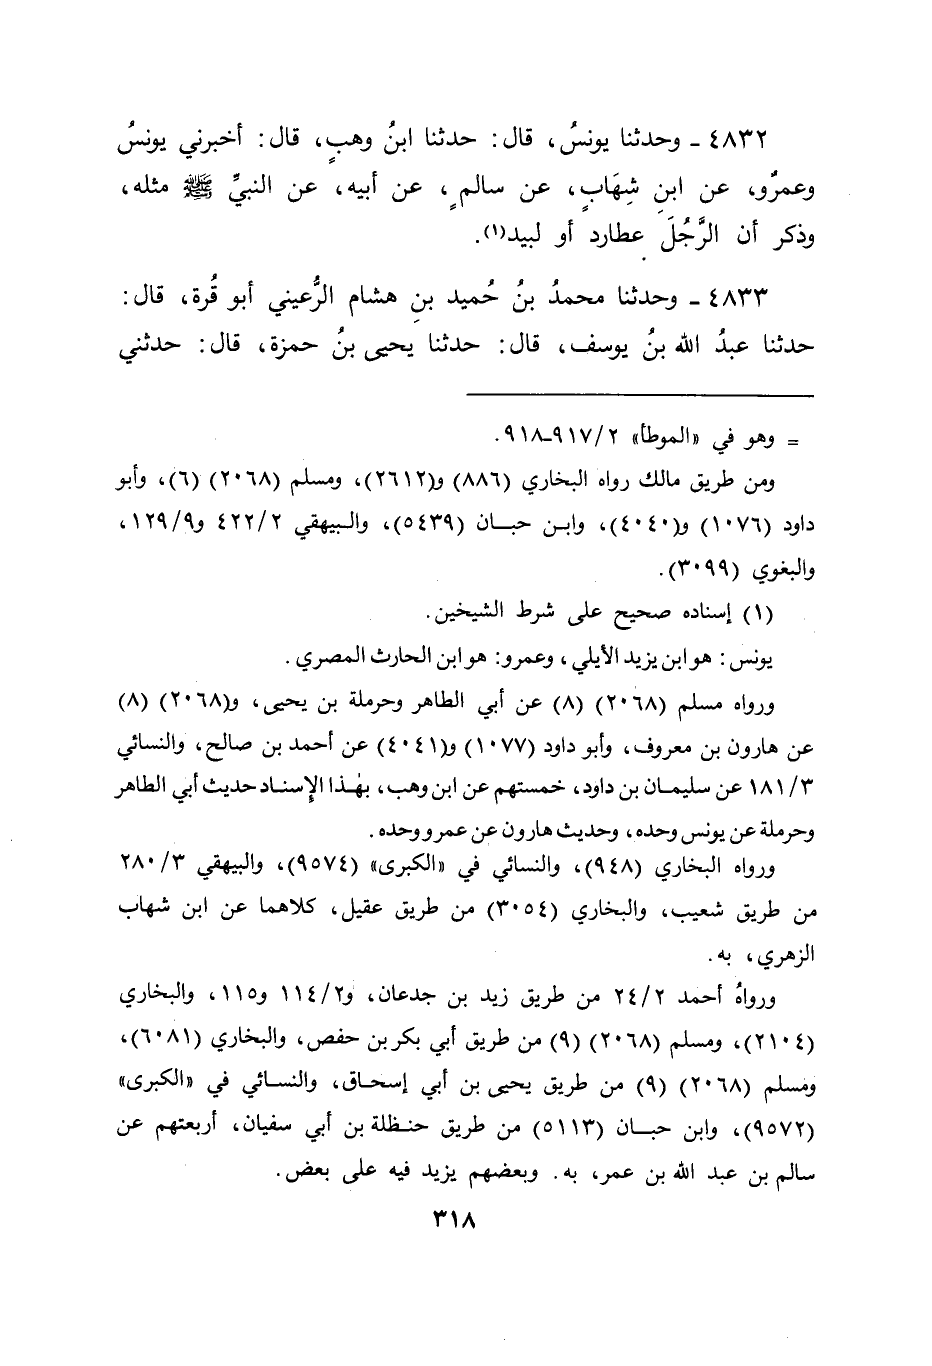 ٤٨٣٢ ـ وحدثنا يونسُ، قال: حدثنا ابنُ وهبٍ، قال: أخبرني يونسُ
وعمرٌو، عن ابنِ شِهَابٍ، عن سالمٍ، عن أبيه، عن النبيِّ ﷺ مثله،
وذكر أن الرَّجُلَ عطارد أو لبيد(١).
٤٨٣٣ ـ وحدثنا محمدُ بنُ حُميد بنِ هشام الرُّعيني أبو قُرة، قال:
حدثنا عبدُ الله بنُ يوسف، قال: حدثنا يحيى بنُ حمزة، قال: حدثني
= وهو في «الموطأ» ٩١٧/٢ـ٩١٨.
ومن طريق مالك رواه البخاري (٨٨٦) و(٢٦١٢)، ومسلم (٢٠٦٨) (٦)، وأبو
داود (١٠٧٦) و(٤٠٤٠)، وابن حبان (٥٤٣٩)، والبيهقي ٤٢٢/٢ و١٢٩/٩،
والبغوي (٣٠٩٩).
(١) إسناده صحيح على شرط الشيخين.
يونس: هو ابن يزيد الأيلي، وعمرو: هو ابن الحارث المصري.
ورواه مسلم (٢٠٦٨) (٨) عن أبي الطاهر وحرملة بن يحيى، و(٢٠٦٨) (٨)
عن هارون بن معروف، وأبو داود (١٠٧٧) و(٤٠٤١) عن أحمد بن صالح، والنسائي
١٨١/٣ عن سليمان بن داود، خمستهم عن ابن وهب، بهٰذا الإسناد حديث أبي الطاهر
وحرملة عن يونس وحده، وحديث هارون عن عمرو وحده.
ورواه البخاري (٩٤٨)، والنسائي في «الكبرى» (٩٥٧٤)، والبيهقي ٢٨٠/٣
من طريق شعيب، والبخاري (٣٠٥٤) من طريق عقيل، كلاهما عن ابن شهاب
الزهري، به.
ورواهُ أحمد ٢٤/٢ من طريق زيد بن جدعان، و١١٤/٢ و١١٥، والبخاري
(٢١٠٤)، ومسلم (٢٠٦٨) (٩) من طريق أبي بكر بن حفص، والبخاري (٦٠٨١)،
ومسلم (٢٠٦٨) (٩) من طريق يحيى بن أبي إسحاق، والنسائي في «الكبرى»
(٩٥٧٢)، وابن حبان (٥١١٣) من طريق حنظلة بن أبي سفيان، أربعتهم عن
سالم بن عبد الله بن عمر، به. وبعضهم يزيد فيه على بعض.
٣١٨